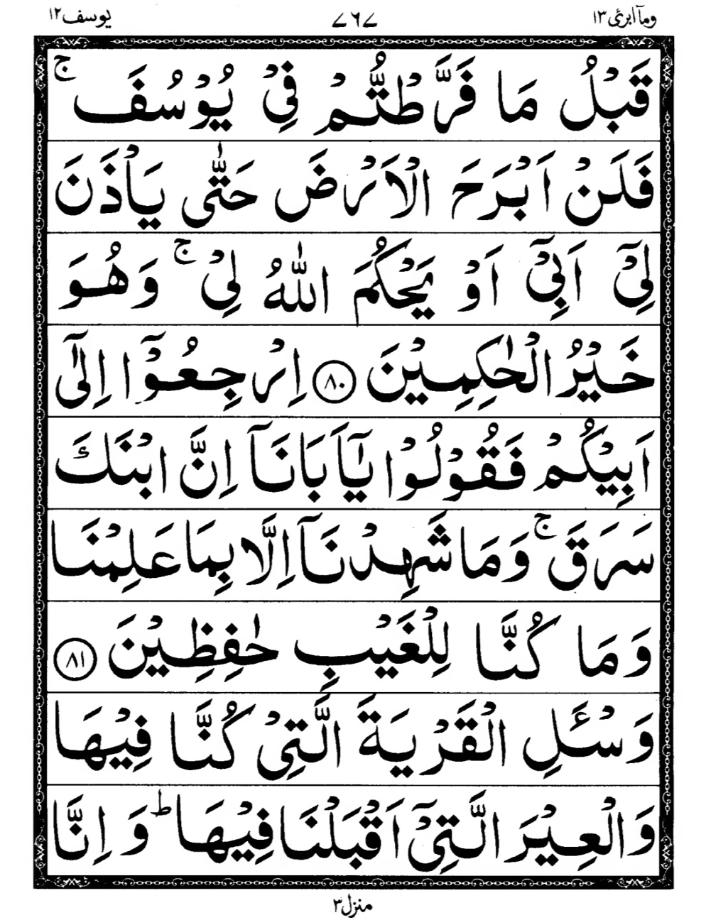 وما ابرئ ١٣ ٧٦٧ يوسف ١٢
قَبْلُ مَا فَرَّطْتُّمْ فِيْ يُوْسُفَ ۚ
فَلَنْ اَبْرَحَ الْاَرْضَ حَتّٰى يَاْذَنَ
لِيْۤ اَبِيْۤ اَوْ يَحْكُمَ اللّٰهُ لِيْ ۚ وَهُوَ
خَيْرُ الْحٰكِمِيْنَ ﴿٨٠﴾ اِرْجِعُوْۤا اِلٰۤى
اَبِيْكُمْ فَقُوْلُوْا يٰۤاَبَانَاۤ اِنَّ ابْنَكَ
سَرَقَ ۚ وَمَا شَهِدْنَاۤ اِلَّا بِمَا عَلِمْنَا
وَمَا كُنَّا لِلْغَيْبِ حٰفِظِيْنَ ﴿٨١﴾
وَسْـَٔلِ الْقَرْيَةَ الَّتِيْ كُنَّا فِيْهَا
وَالْعِيْرَ الَّتِيْۤ اَقْبَلْنَا فِيْهَا ؕ وَاِنَّا
منزل ٣